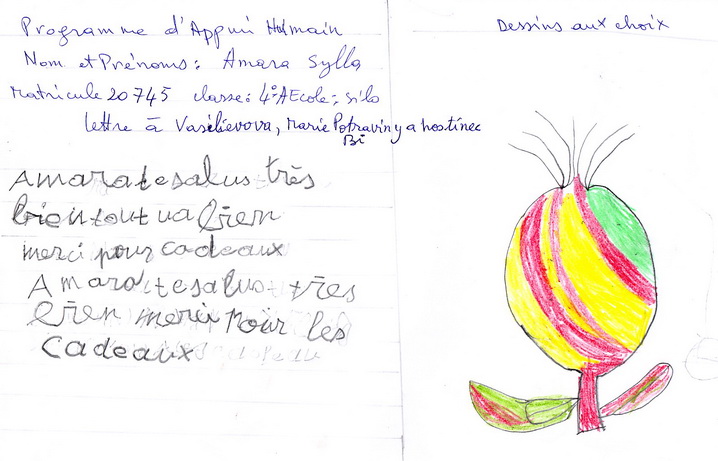 Programme d'Appui Humain
Nom et Prénoms: Amara Sylla
Matricule 20745 classe: 4°A Ecole: silo
lettre à Vasilievova, Marie Potraviny a hostinec
Bi
Amara te salus très
bien tout va bien
merci pour cadeaux
Amara te salus très
bien merci pour les
cadeaux
Dessins aux choix